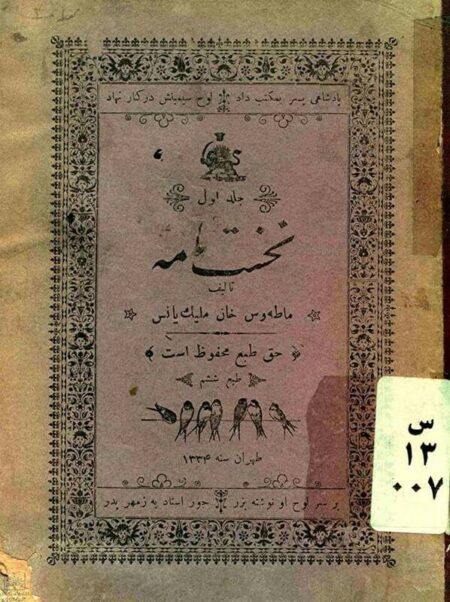 پادشاهی پسر بمکتب داد لوح سیمینش در کنار نهاد
جلد اول
نخست نامه
تألیف
ماطه وس خان ملیک یانس
حق طبع محفوظ است
طبع ششم
طهران سنه ۱۳۳۴
بر سر لوح او نوشته بزر جور استاد به زمهر پدر
س
۱۳
۰۰۷